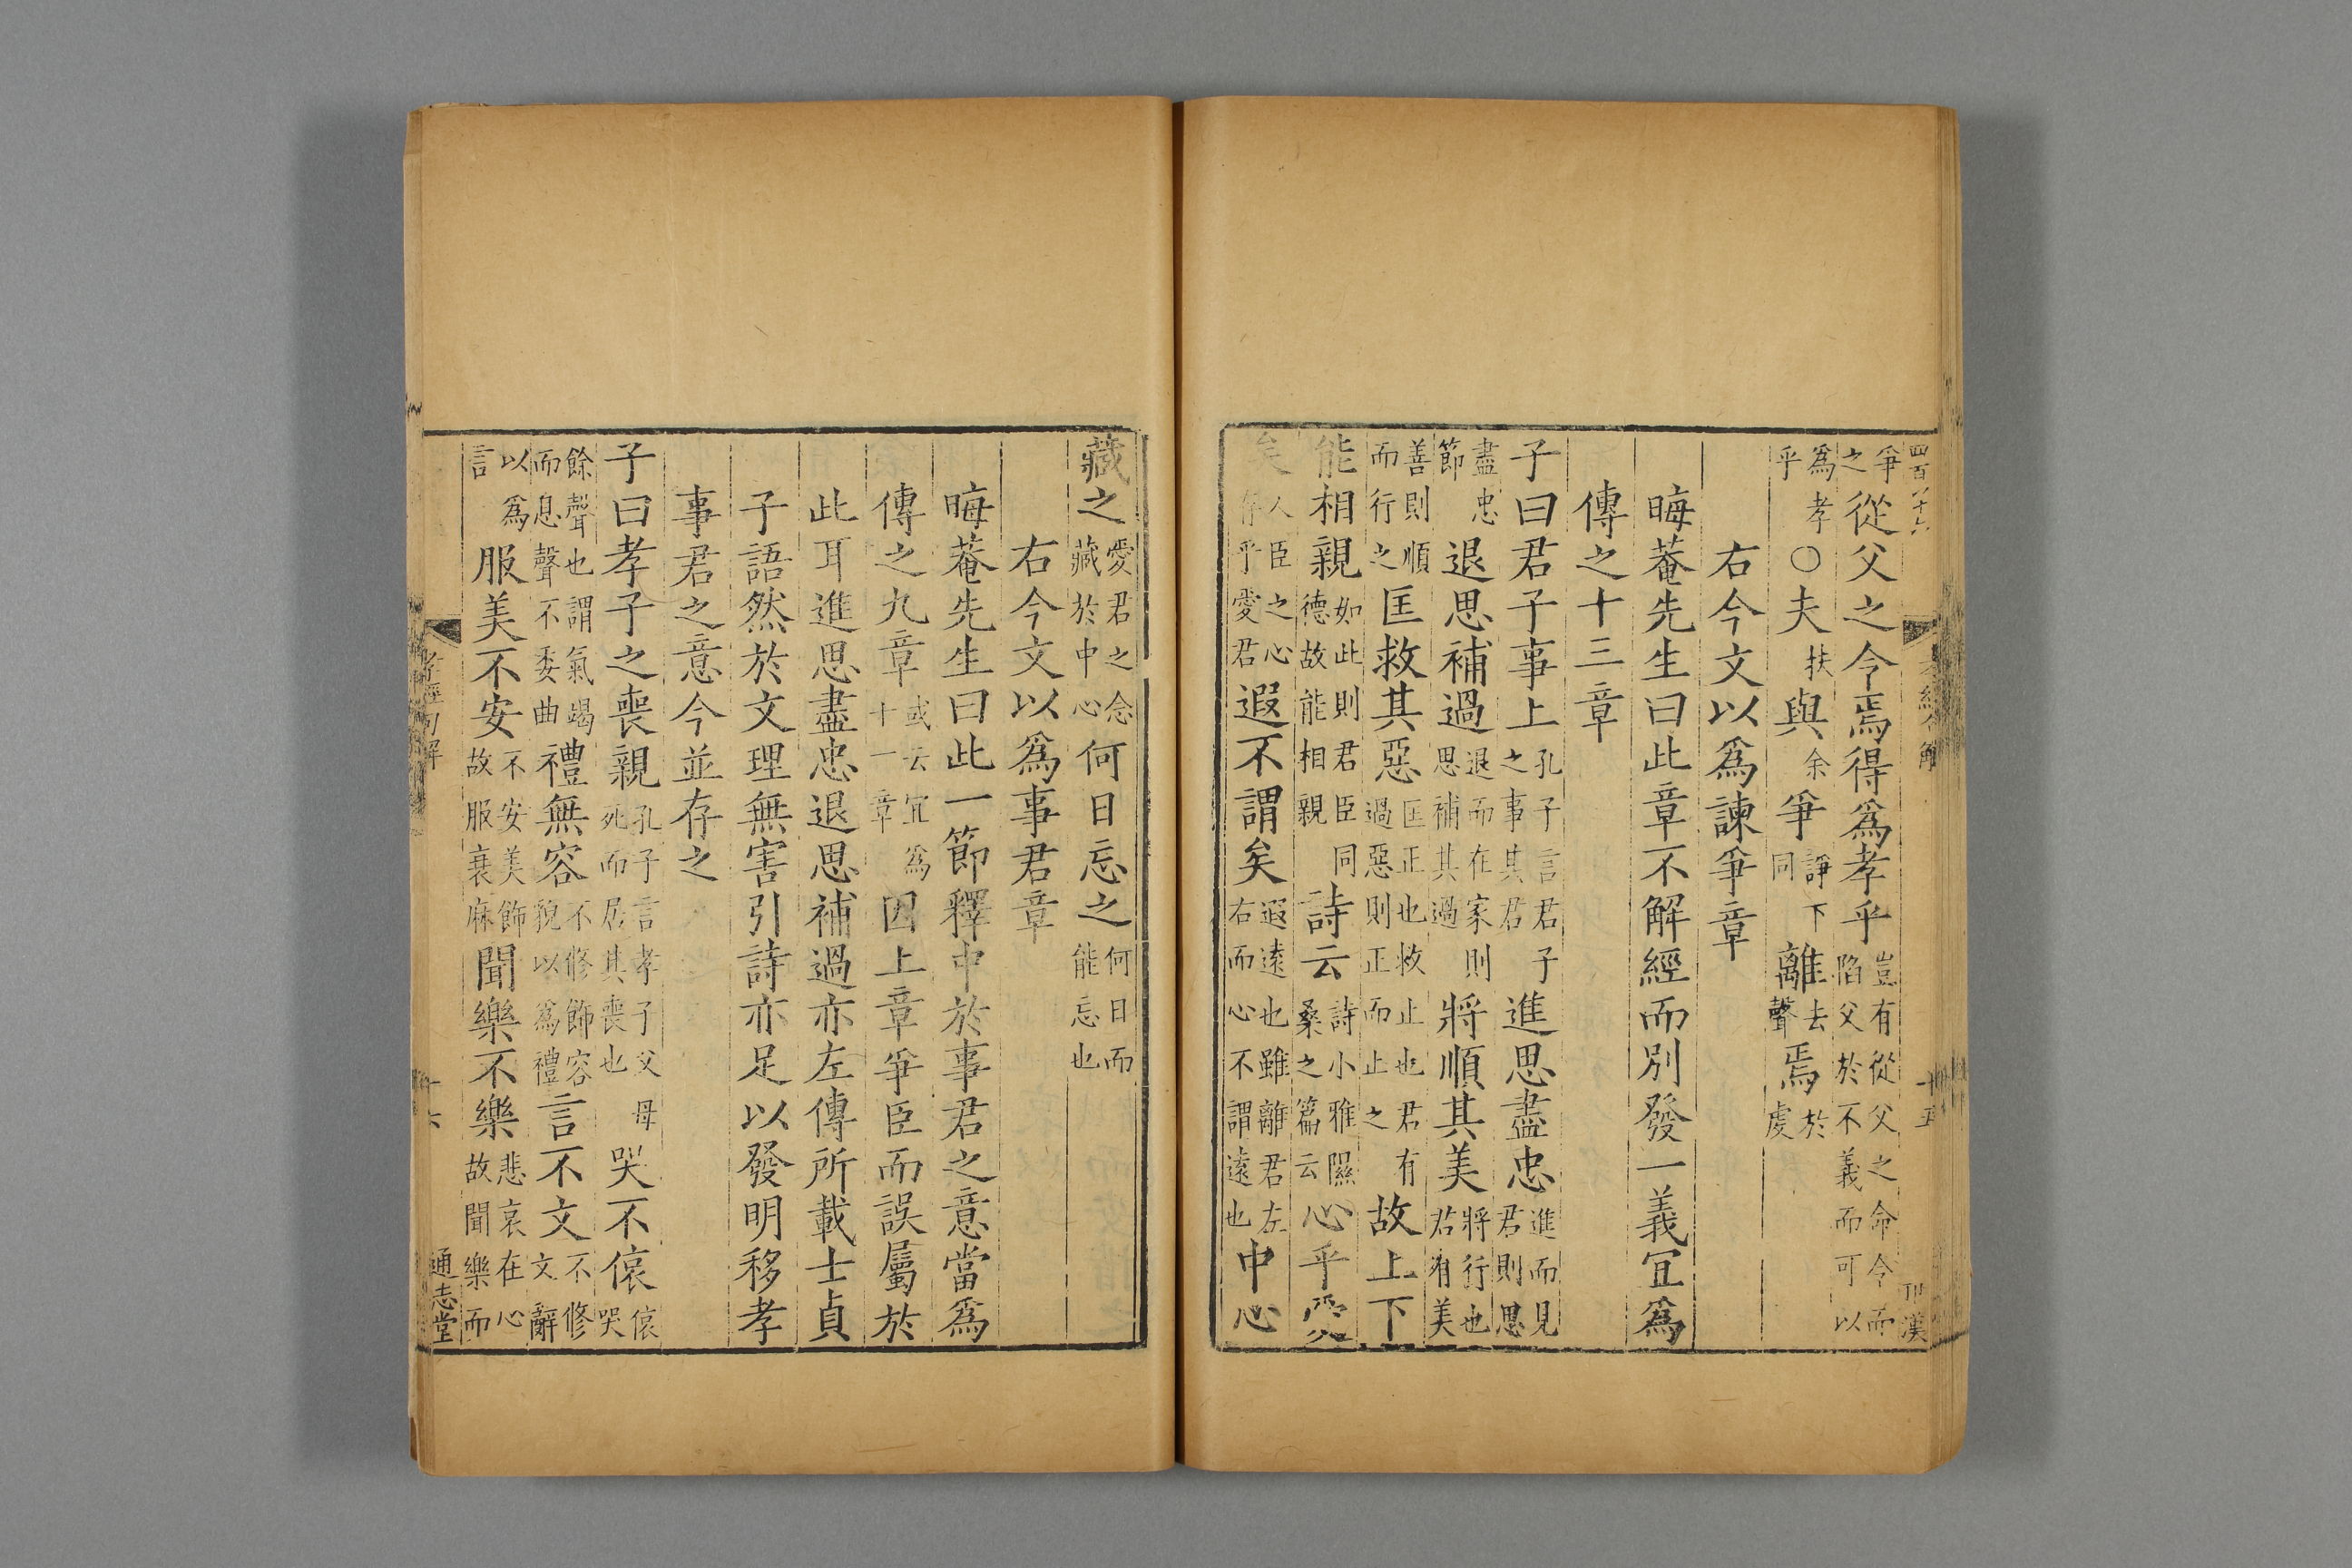 四百八十六
孝經句解
十五
爭之從父之令焉得爲孝乎豈有從父之命令而陷父於不義而可以
爲孝乎○夫扶與余爭諍下同離去聲焉於虔
右今文以爲諫爭章
晦菴先生曰此章不解經而別發一義宜爲
傳之十三章
子曰君子事上孔子言君子之事其君進思盡忠進而見君則思
盡忠節退思補過退而在家則思補其過將順其美將行也君有美
善則順而行之匡救其惡匡正也救止也君有過惡則正而止之故上下
能相親如此則君臣同德故能相親詩云詩小雅隰桑之篇云心乎愛
矣人臣之心存乎愛君遐不謂矣遐遠也雖離君左右而心不謂遠也中心
藏之愛君之念藏於中心何日忘之何日而能忘也
右今文以爲事君章
晦菴先生曰此一節釋中於事君之意當爲
傳之九章或云宜爲十一章因上章爭臣而誤屬於
此耳進思盡忠退思補過亦左傳所載士貞
子語然於文理無害引詩亦足以發明移孝
事君之意今並存之
子曰孝子之喪親孔子言孝子父母死而居其喪也哭不偯偯哭
餘聲也謂氣竭而息聲不委曲禮無容不修飾容貌以爲禮言不文不修文辭
以爲言服美不安不安美飾故服衰麻聞樂不樂悲哀在心故聞樂而
孝經句解
十六
通志堂